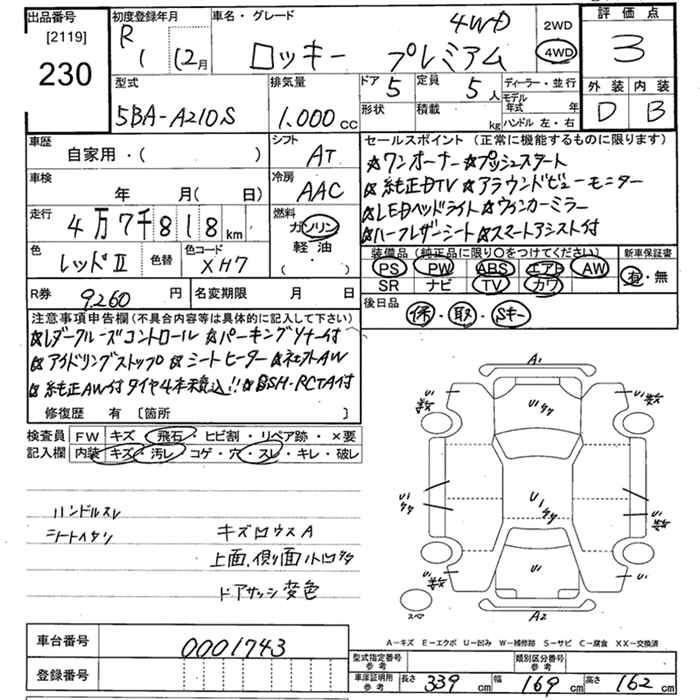 出品番号 初度登録年月 車名・グレード 4WD 2WD 評価点
[2119] R 1 12月 ロッキー プレミアム 4WD 3
230
型式 排気量 ドア 5 定員 5人 ディーラー・並行 外装 内装
5BA-A210S 1.000cc 形状 積載 kg モデル年式 年 D B
ハンドル 左・右
車歴 シフト セールスポイント（正常に機能するものに限ります）
自家用・( ) AT ☆ワンオーナー☆プッシュスタート
車検 冷房 ☆純正DTV ☆アラウンドビューモニター
年 月( 日) AAC ☆LEDヘッドライト☆ウィンカーミラー
走行 燃料 ☆ハーフレザーシート☆スマートアシスト付
4万7千818km ガソリン
軽油
( ・ )
色 色替 色コード 装備品（純正品に限り○をつけてください） 新車保証書
レッドⅡ XH7 PS PW ABS エアB AW 有・無
SR ナビ TV カワ
R券 9260円 名変期限 月 日 後日品 保・取・Sキー
注意事項申告欄(不具合内容等は具体的に記入して下さい)
☆レダークルーズコントロール ☆パーキングソナー付
☆アイドリングストップ ☆シートヒーター
☆純正AW付タイヤ4本
☆BSM・RCTA付
修復歴 有〔箇所 〕
検査員 FW キズ・飛石・ヒビ割・リペア跡・×要
記入欄 内装 キズ・汚レ・コゲ・穴・スレ・キレ・破レ
ハンドルスレ
シートヘタリ キズ凹ウスA
上面、側面小凹
ドアサッシ変色
A1
U1
U1
U1
U1
U1
U1
U1
U1
U1
スペア
A2
A−キズ E−エクボ U−凹み W−補修跡 S−サビ C−腐食 XX−交換済
車台番号 0001743
登録番号
型式指定番号参考 類別区分番号参考
車庫証明用参考 長さ 339cm 幅 169cm 高さ 162cm